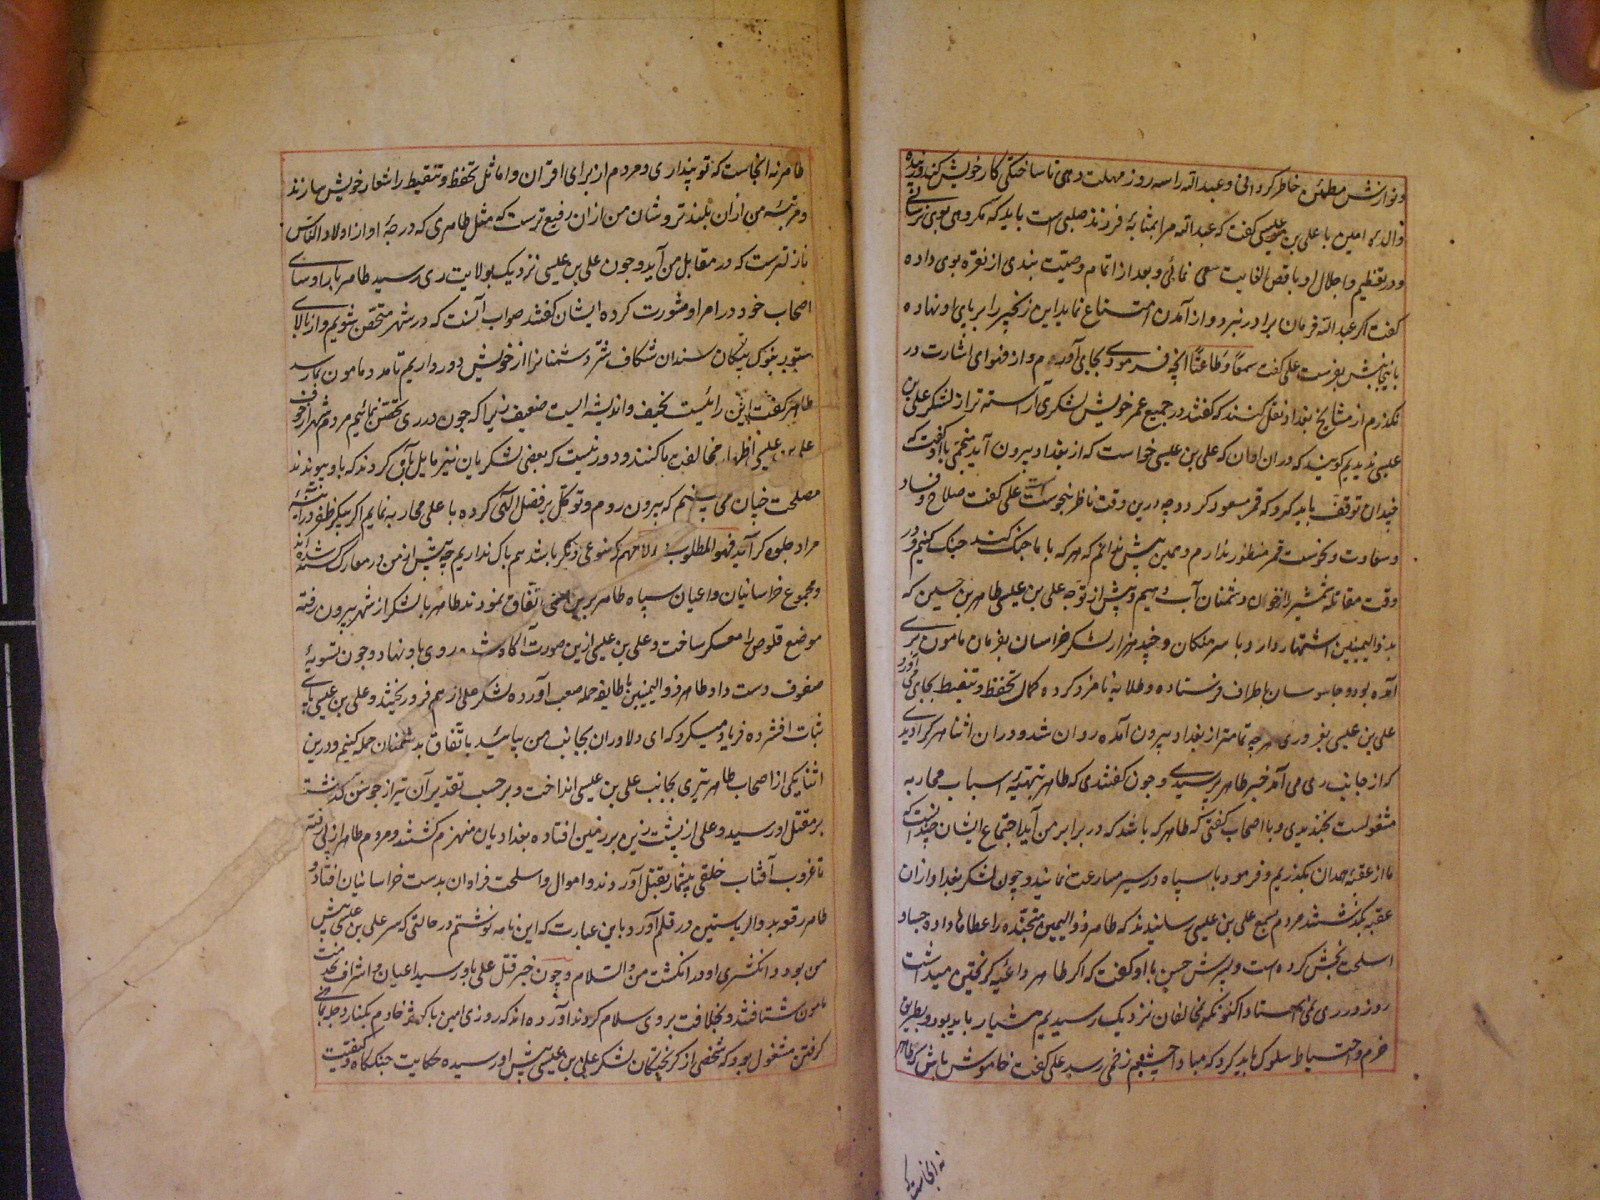 و نوازش مطمئن خاطر گردانی و عبدالله را سه روز مهلت دهی تا ساختگی کار خویش کند و زبیده
والدۀ امین با علی بن عیسی گفت که عبدالله مرا بمثابۀ فرزند صلبی است باید که مکروهی بوی نرسانی
و در تعظیم و اجلال او باقصی الغایت سعی نمائی و بعد از اتمام وصیت بندی از نقره بوی داده
گفت اگر عبدالله فرمان برادر نبرد و از آمدن امتناع نماید این زنجیر را بر پای او نهاده
باینجانبش بفرست علی گفت سمعا و طاعتا آنچه فرمودی بجای آورم و از فحوای اشارت در
نگذرم از مشایخ بغداد نقل کنند که گفتند در جمیع عمر خویش لشکری آراسته تر از لشکر علی بن
عیسی ندیدیم گویند که در ان اوان که علی بن عیسی خواست که از بغداد بیرون آید منجمی با او گفت که
چندان توقف باید کرد که قمر مسعود گردد چه درین وقت ناظر بنحوست است علی گفت صلاح و فساد
و سعادت و نحوست قمر منظور ندارم و همین بیش ندانم که هر که با ما جنگ کند جنگ کنیم و در
وقت مقاتله شمشیر را از خون دشمنان آب دهیم و پیش از توجه علی بن عیسی طاهر بن حسین که
بذوالیمینین اشتهار دارد با سرهنگان و چند هزار لشکر خراسان بفرمان مامون بری
آمده بود و جاسوسان باطراف فرستاده و طلایه نامزد کرده کمال تحفظ و تیقظ بجای می آورد
علی بن عیسی بغروری هر چه تمامتر از بغداد بیرون آمده روان شد و در ان اثنا هر کرا دیدی
که از جانب ری می آمد خبر طاهر پرسیدی و چون گفتندی که طاهر بتهیۀ اسباب محاربه
مشغولست بخندیدی و با اصحاب گفتی که طاهر که باشد که در برابر من آید اجتماع ایشان چندانست که
ما از عقبۀ همدان بگذریم و فرمود تا سپاه در سیر مسارعت نمایند و چون لشکر بغداد از ان
عقبه بگذشتند مردم بسمع علی بن عیسی رسانیدند که طاهر ذوالیمینین متجنده را عطاها داده جبا و
اسلحه بخش کرده است و پسرش حسن با او گفت که اگر طاهر داعیۀ گریختن میداشت
روز در ری نمی استاد اکنون که بمخالفان نزدیک رسیدیم هشیار باید بود و بطریق
حزم و احتیاط سلوک باید کرد که مبادا چشم زخمی رسد علی گفت خاموش باش که طاهر
نه انجاست که
طاهر نه انجاست که تو پنداری و مردم از برای اقران و اماثل تحفظ و تیقظ را شعار خویش سازند
و مرتبۀ من از ان بلندتر و شان من از ان رفیع ترست که مثل طاهری که درجۀ او از اولاد الناس
نازلترست که در مقابل من آید و چون علی بن عیسی نزدیک بولایت ری رسید طاهر با براوسای
اصحاب خود در امر او مشورت کرده ایشان گفتند صواب آنست که در شهر متحصن شویم و از بالای
بنوک پیکان سندان شکاف شر دشمنانرا از خویش دور داریم تا مدد مامون بما رسد
طاهر گفت این رائیست سخیف و اندیشه ایست ضعیف زیرا که چون در ری تحصن نمائیم مردم شهر از خوف
علی بن عیسی اظهار مخالفت ما کنند و دور نیست که بعضی لشکریان نیز مایل بآق گردند که باو پیوندند
مصلحت چنان می بینم که بیرون روم و توکل بر فضل الهی کرده با علی محاربه نمایم اگر پیکر ظفر در آینه
مراد جلوه گر آید فهو المطلوب و الا مهم گر بنوعی دیگر باشد هم باک نداریم چه پیش از من در معارک کشته شده اند
و مجموع خراسانیان و اعیان سپاه طاهر برین معنی اتفاق نمودند طاهر با لشکر از شهر بیرون رفته
موضع قلوص را معسکر ساخت و علی بن عیسی ازین صورت آگاه شده روی باو نهاد و چون تسویۀ
صفوف دست داد طاهر ذوالیمینین با طایفه حمله صعب آورده لشکر علی از هم فرو ریختند و علی بن عیسی پای
ثبات افشرده فریاد میکرد که ای دلاوران بجانب من بیائید باتفاق بدشمنان حمله کنیم و درین
اثنا یکی از اصحاب طاهر تیری بجانب علی بن عیسی انداخت و بر حسب تقدیر آن تیر از جوشن گذشته
بر مقتل او رسید و علی از پشت زین بر زمین افتاده بغدادیان منهزم گشتند و مردم طاهر از پی رفته
تا غروب آفتاب خلقی بیشمار بقتل آوردند و اموال و اسلحه فراوان بدست خراسانیان افتاد و
طاهر رقعه بذوالریاستین در قلم آورد باین عبارت که این نامه نوشتم در حالتی که سر علی بن عیسی پیش
من بود و انگشتری او در انگشت من والسلام و چون خبر قتل علی باو رسید اعیان و اشراف بخدمت
مامون شتافتند و بخلافت بر وی سلام کردند آورده اند که روزی امین با کوثر خادم بکنار دجله بماهی
گرفتن مشغول بود که شخصی از گریختگان لشکر علی بن عیسی پیش او رسیده حکایت جنگ و کیفیت